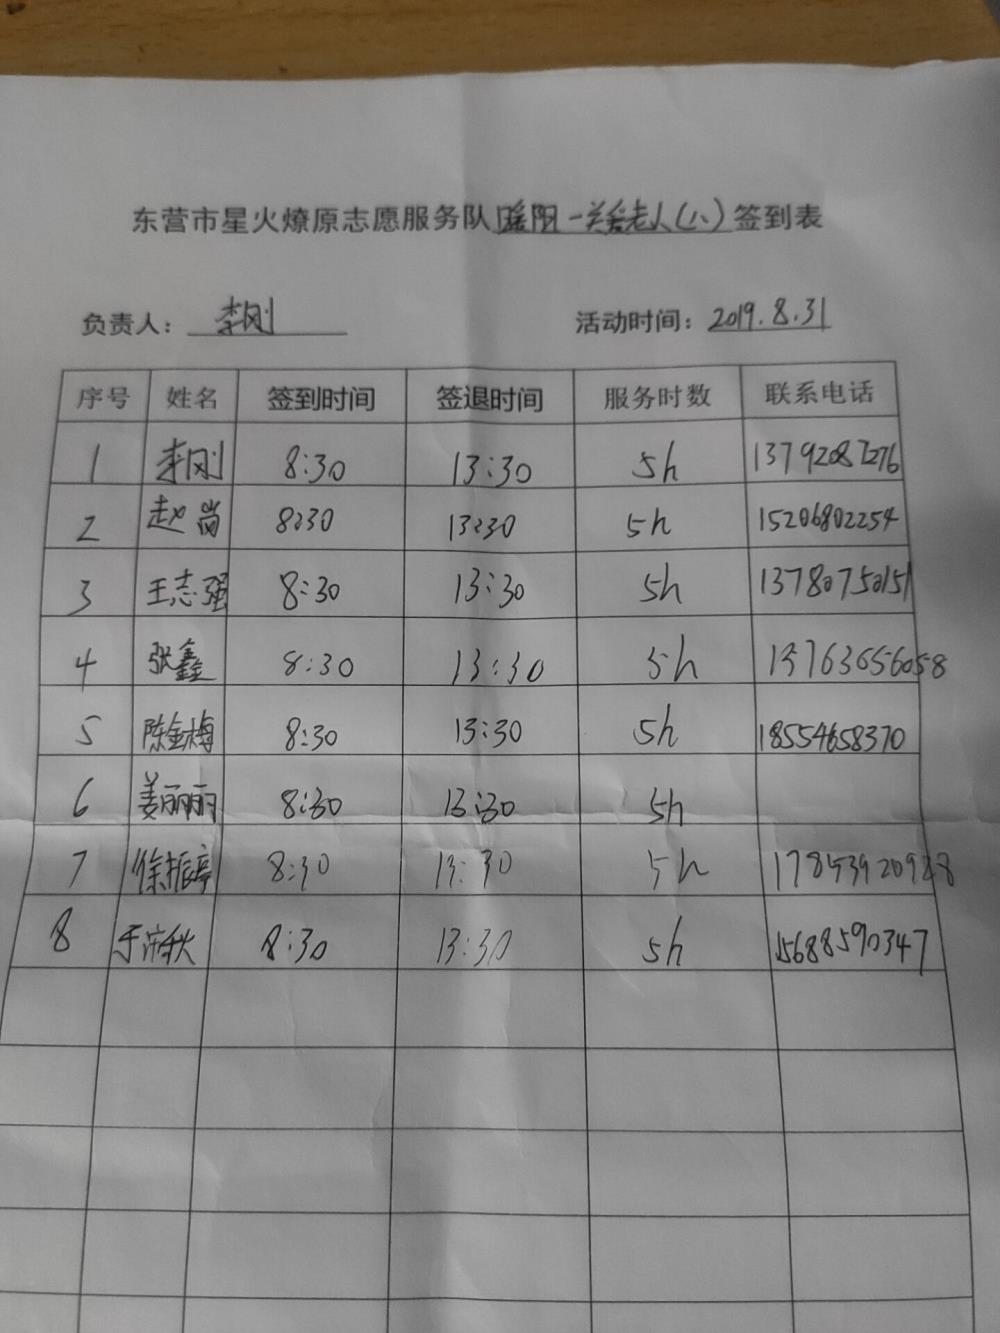 东营市星火燎原志愿服务队暖阳一关爱老人(八)签到表
负责人：李刚 活动时间：2019.8.31
序号 姓名 签到时间 签退时间 服务时数 联系电话
1 李刚 8:30 13:30 5h 13792087276
2 赵岗 8:30 13:30 5h 15206802254
3 王志强 8:30 13:30 5h 13780750151
4 张鑫 8:30 13:30 5h 13763656058
5 陈金梅 8:30 13:30 5h 18554658370
6 姜丽丽 8:30 13:30 5h
7 徐振亭 8:30 13:30 5h
8 8:30 13:30 5h 15688590347